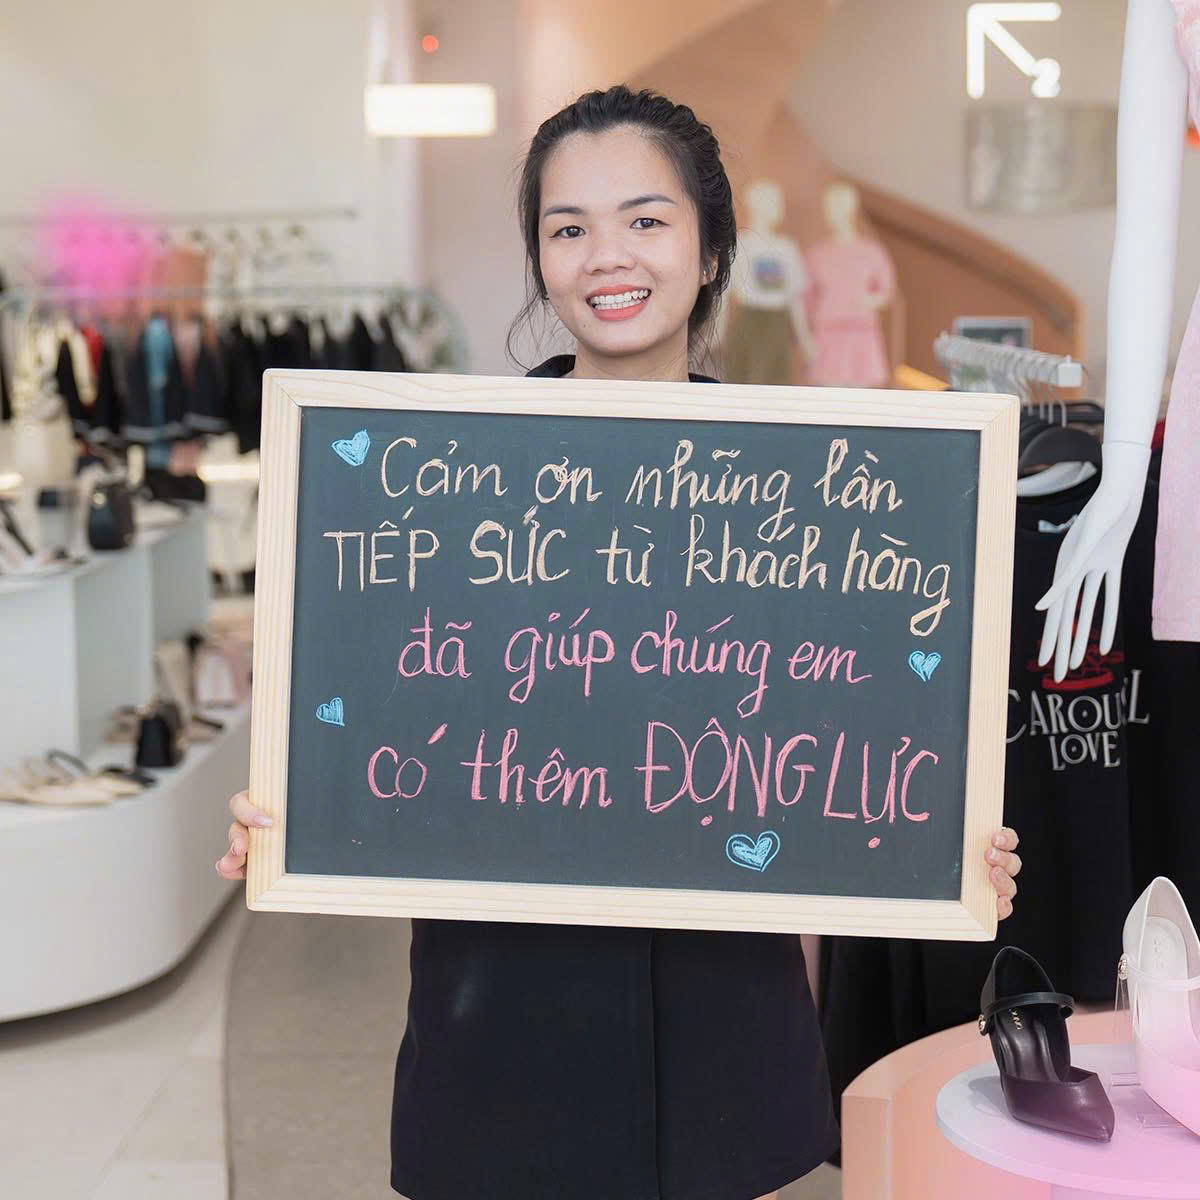 Cảm ơn những lần
TIẾP SỨC từ khách hàng
đã giúp chúng em
có thêm ĐỘNG LỰC
CAROUSEL
LOVE
2